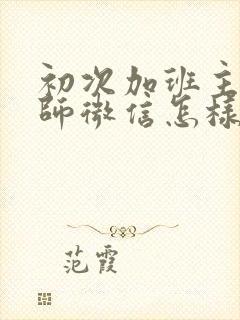 初次加班主
师微信怎样
范霞